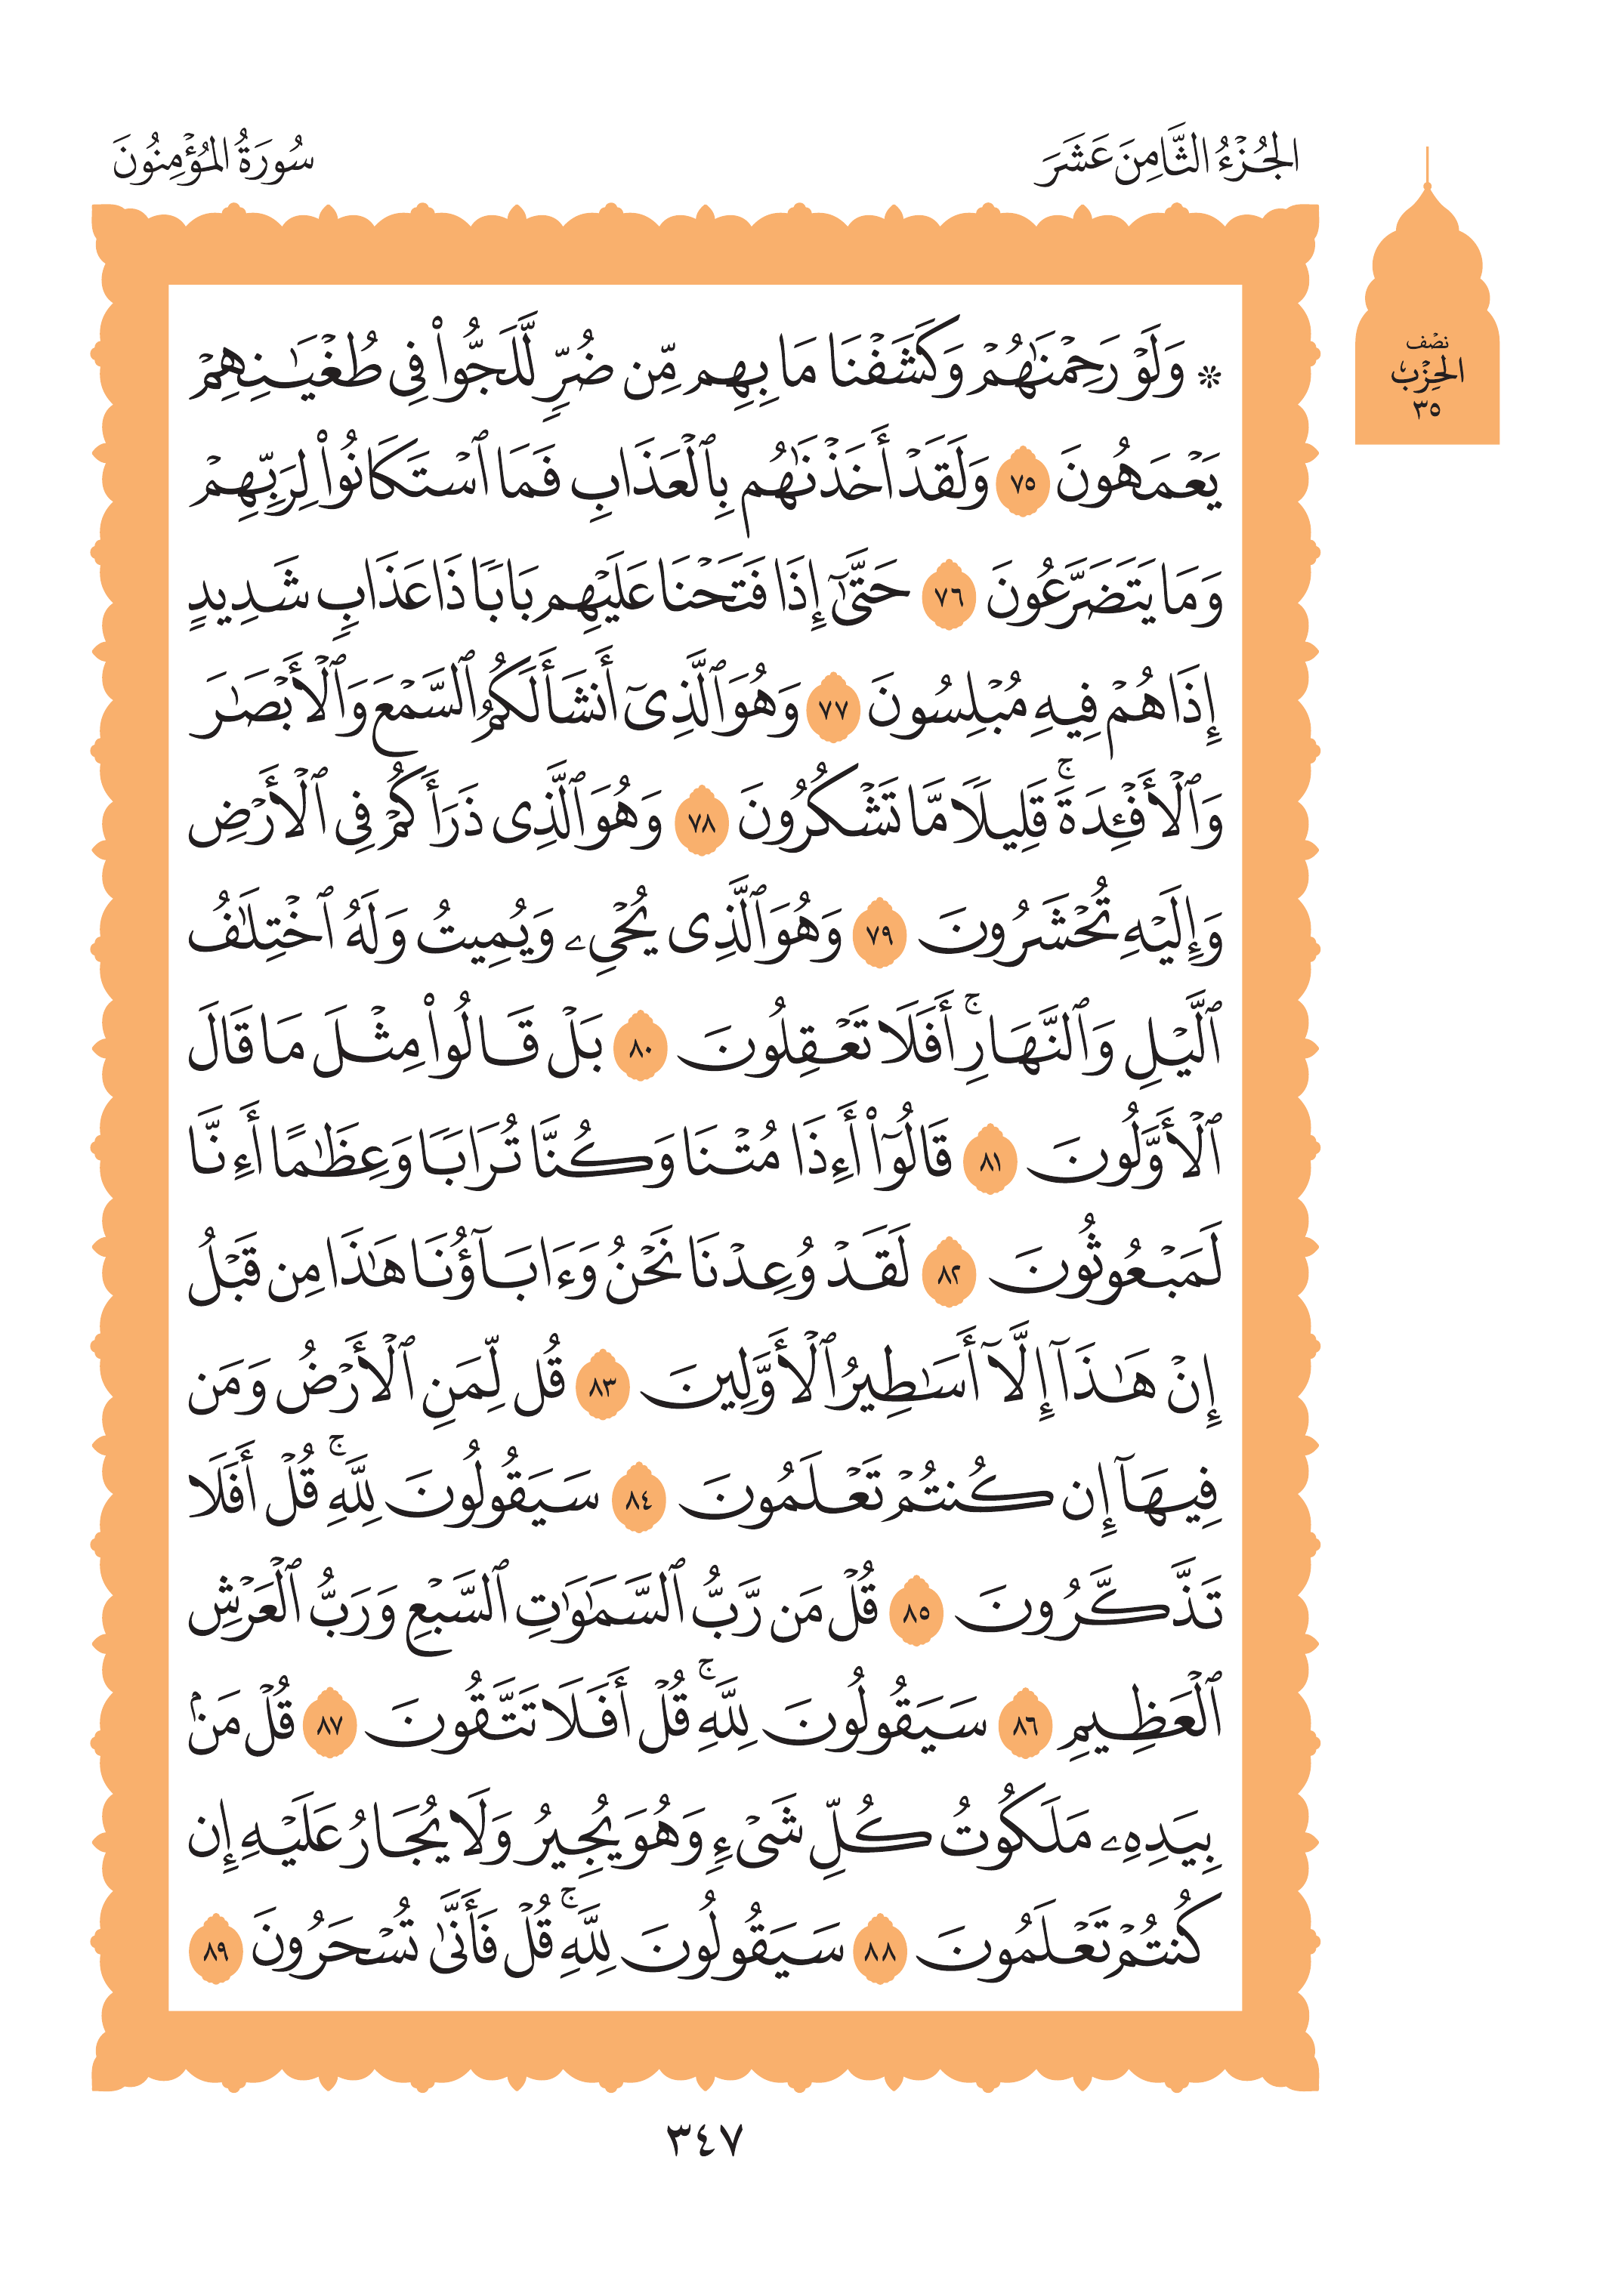 الجُزْءُ الثَّامِنَ عَشَرَ
سُورَةُ المُؤْمِنُونَ
نصْف
الحِزْب
٣٥
* وَلَوْ رَحِمْنَٰهُمْ وَكَشَفْنَا مَا بِهِم مِّن ضُرٍّ لَّلَجُّوا۟ فِى طُغْيَـٰنِهِمْ
يَعْمَهُونَ ٧٥ وَلَقَدْ أَخَذْنَـٰهُم بِٱلْعَذَابِ فَمَا ٱسْتَكَانُوا۟ لِرَبِّهِمْ
وَمَا يَتَضَرَّعُونَ ٧٦ حَتَّىٰٓ إِذَا فَتَحْنَا عَلَيْهِم بَابًا ذَا عَذَابٍ شَدِيدٍ
إِذَا هُمْ فِيهِ مُبْلِسُونَ ٧٧ وَهُوَ ٱلَّذِىٓ أَنشَأَ لَكُمُ ٱلسَّمْعَ وَٱلْأَبْصَـٰرَ
وَٱلْأَفْـِٔدَةَ ۚ قَلِيلًا مَّا تَشْكُرُونَ ٧٨ وَهُوَ ٱلَّذِى ذَرَأَكُمْ فِى ٱلْأَرْضِ
وَإِلَيْهِ تُحْشَرُونَ ٧٩ وَهُوَ ٱلَّذِى يُحْىِۦ وَيُمِيتُ وَلَهُ ٱخْتِلَـٰفُ
ٱلَّيْلِ وَٱلنَّهَارِ ۚ أَفَلَا تَعْقِلُونَ ٨٠ بَلْ قَالُوا۟ مِثْلَ مَا قَالَ
ٱلْأَوَّلُونَ ٨١ قَالُوٓا۟ أَءِذَا مُتْنَا وَكُنَّا تُرَابًا وَعِظَـٰمًا أَءِنَّا
لَمَبْعُوثُونَ ٨٢ لَقَدْ وُعِدْنَا نَحْنُ وَءَابَآؤُنَا هَـٰذَا مِن قَبْلُ
إِنْ هَـٰذَآ إِلَّآ أَسَـٰطِيرُ ٱلْأَوَّلِينَ ٨٣ قُل لِّمَنِ ٱلْأَرْضُ وَمَن
فِيهَآ إِن كُنتُمْ تَعْلَمُونَ ٨٤ سَيَقُولُونَ لِلَّهِ ۚ قُلْ أَفَلَا
تَذَكَّرُونَ ٨٥ قُلْ مَن رَّبُّ ٱلسَّمَـٰوَٰتِ ٱلسَّبْعِ وَرَبُّ ٱلْعَرْشِ
ٱلْعَظِيمِ ٨٦ سَيَقُولُونَ لِلَّهِ ۚ قُلْ أَفَلَا تَتَّقُونَ ٨٧ قُلْ مَنۢ
بِيَدِهِۦ مَلَكُوتُ كُلِّ شَىْءٍ وَهُوَ يُجِيرُ وَلَا يُجَارُ عَلَيْهِ إِن
كُنتُمْ تَعْلَمُونَ ٨٨ سَيَقُولُونَ لِلَّهِ ۚ قُلْ فَأَنَّىٰ تُسْحَرُونَ ٨٩
٣٤٧